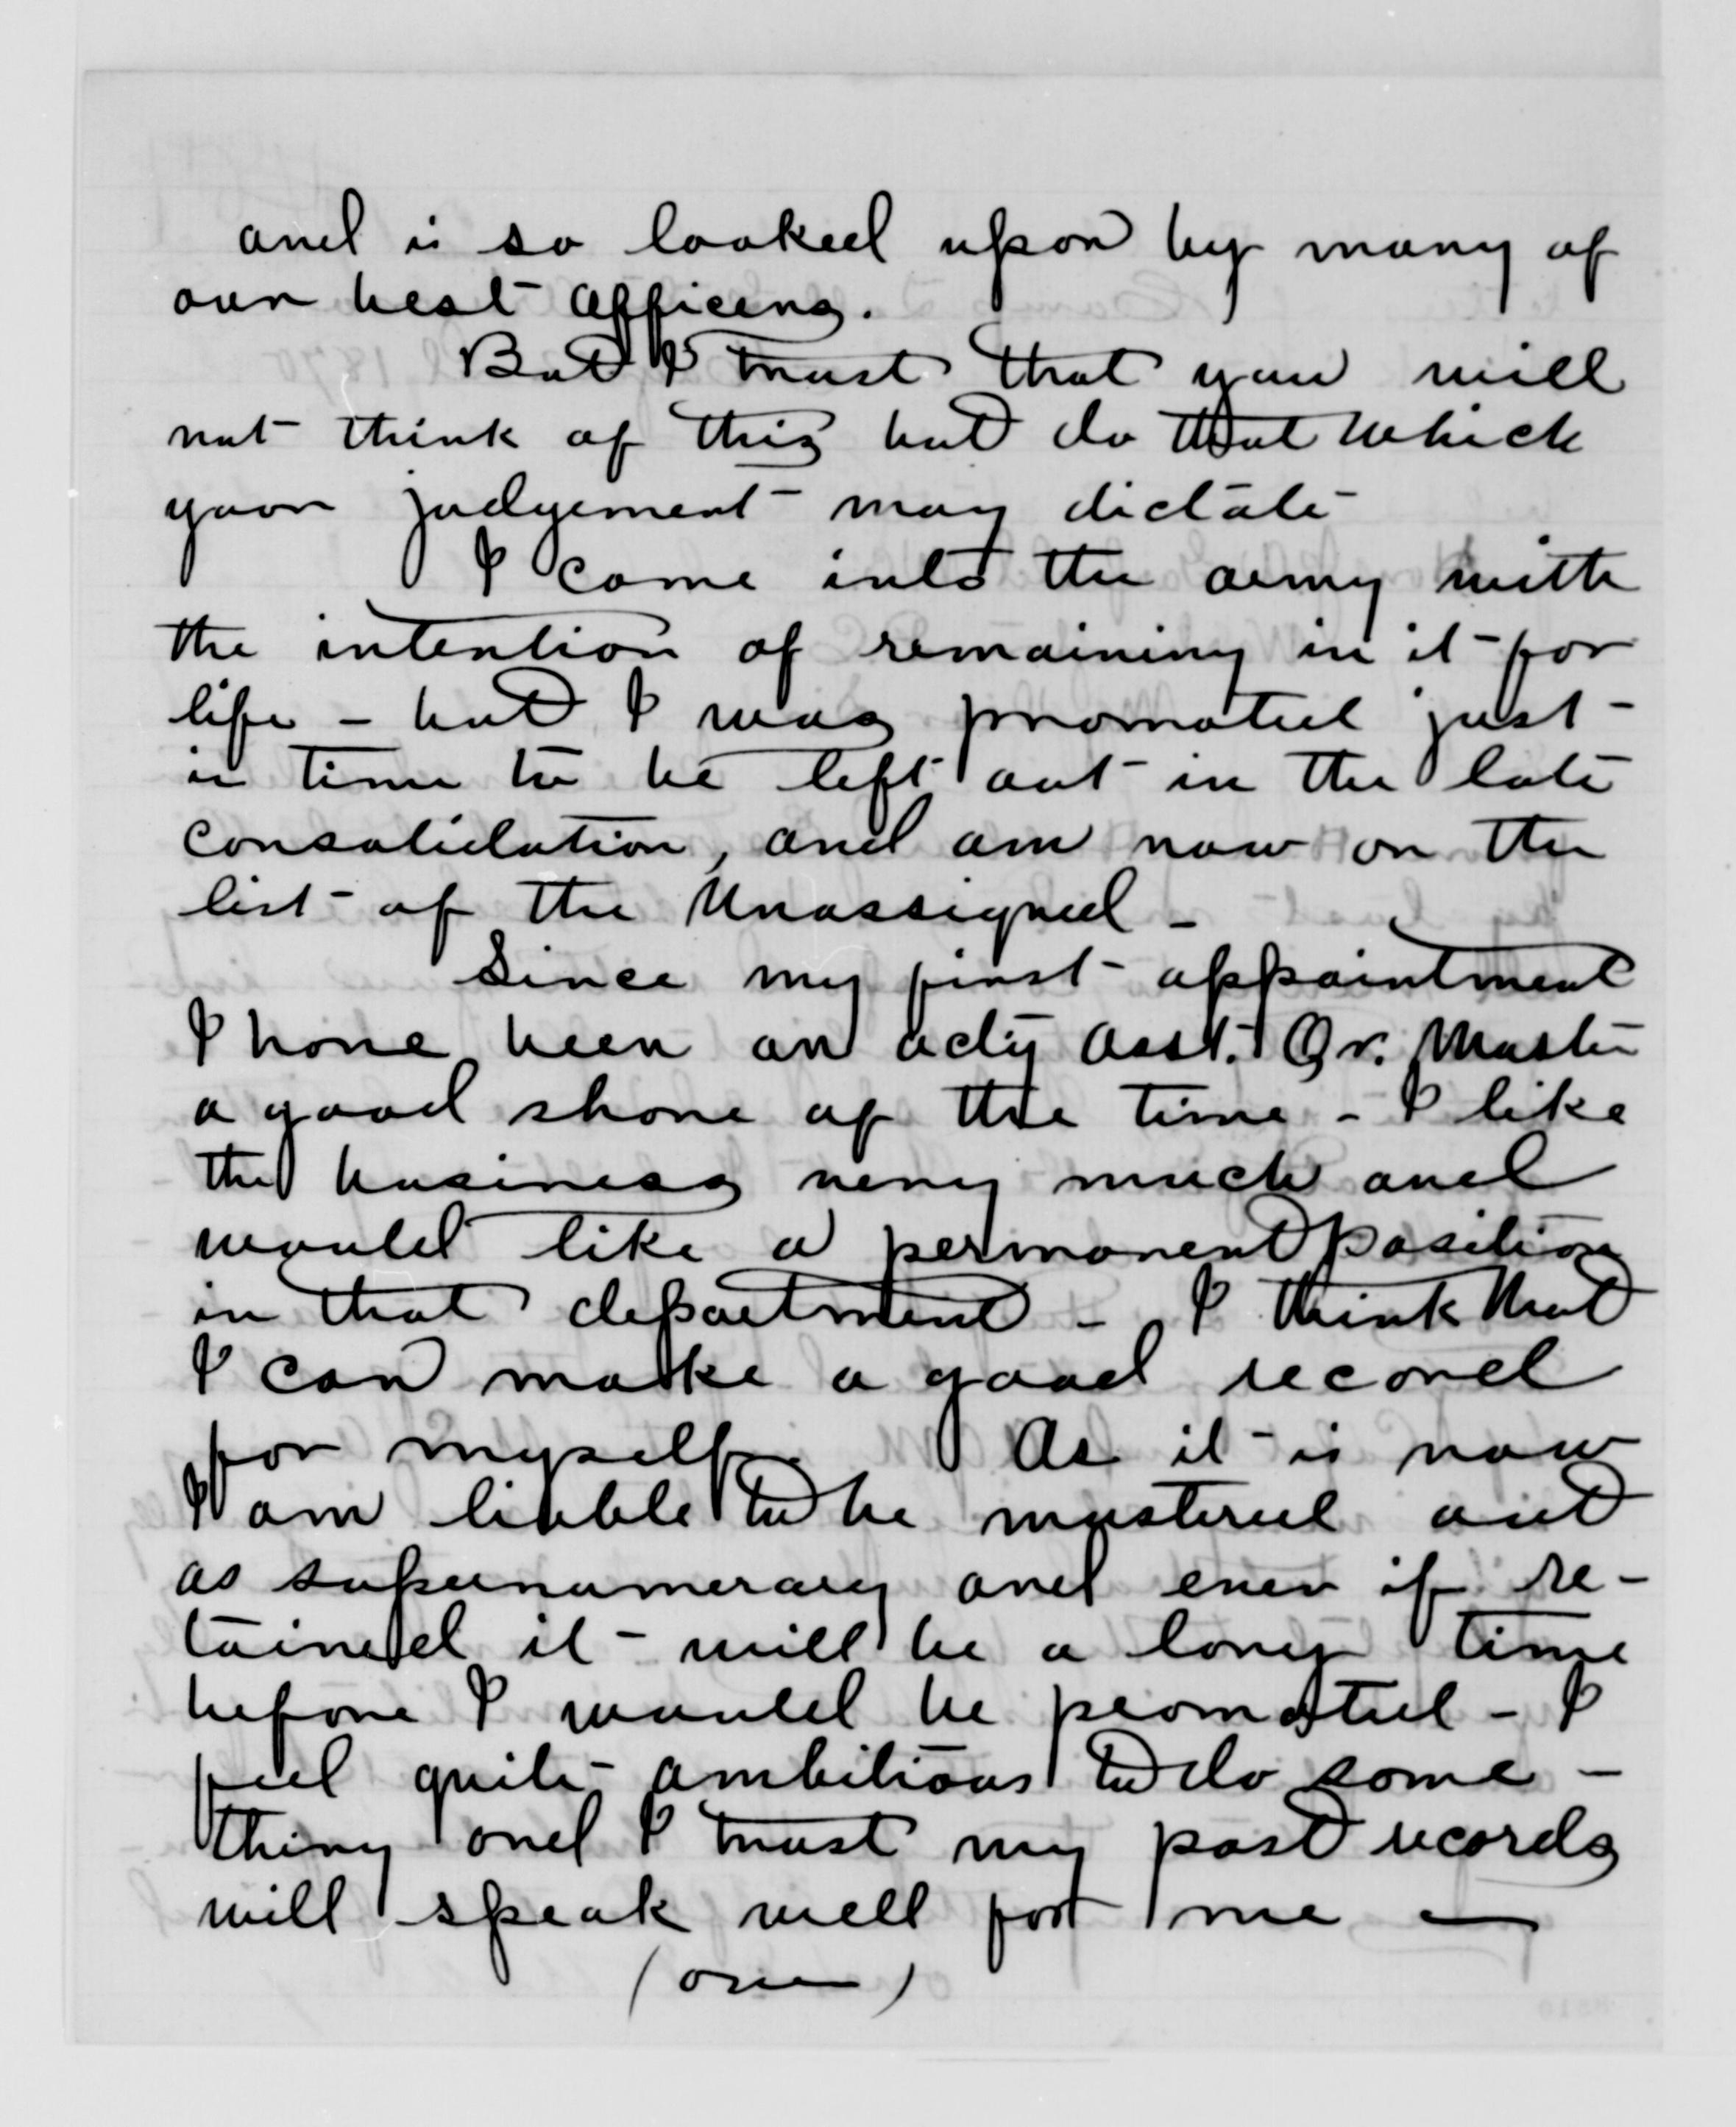 and is so looked upon by many of
our best officers.
But I trust that you will
not think of this but do that which
your judgement may dictate
I came into the army with
the intention of remaining in it for
life - but I was promoted just
in time to be left out in the late
consolidation, and am now on the
list of the Unassigned -
Since my first appointment
I have been an actg asst. Qr. Master
a good share of the time - I like
the business very much and
would like a permanent position
in that department - I think that
I can make a good record
for myself. As it is now
I am liable to be mustered out
as supernumerary and even if re-
tained it will be a long time
before I would be promoted - I
feel quite ambitious to do some -
thing and I trust my past records
will speak well for me -
(over)